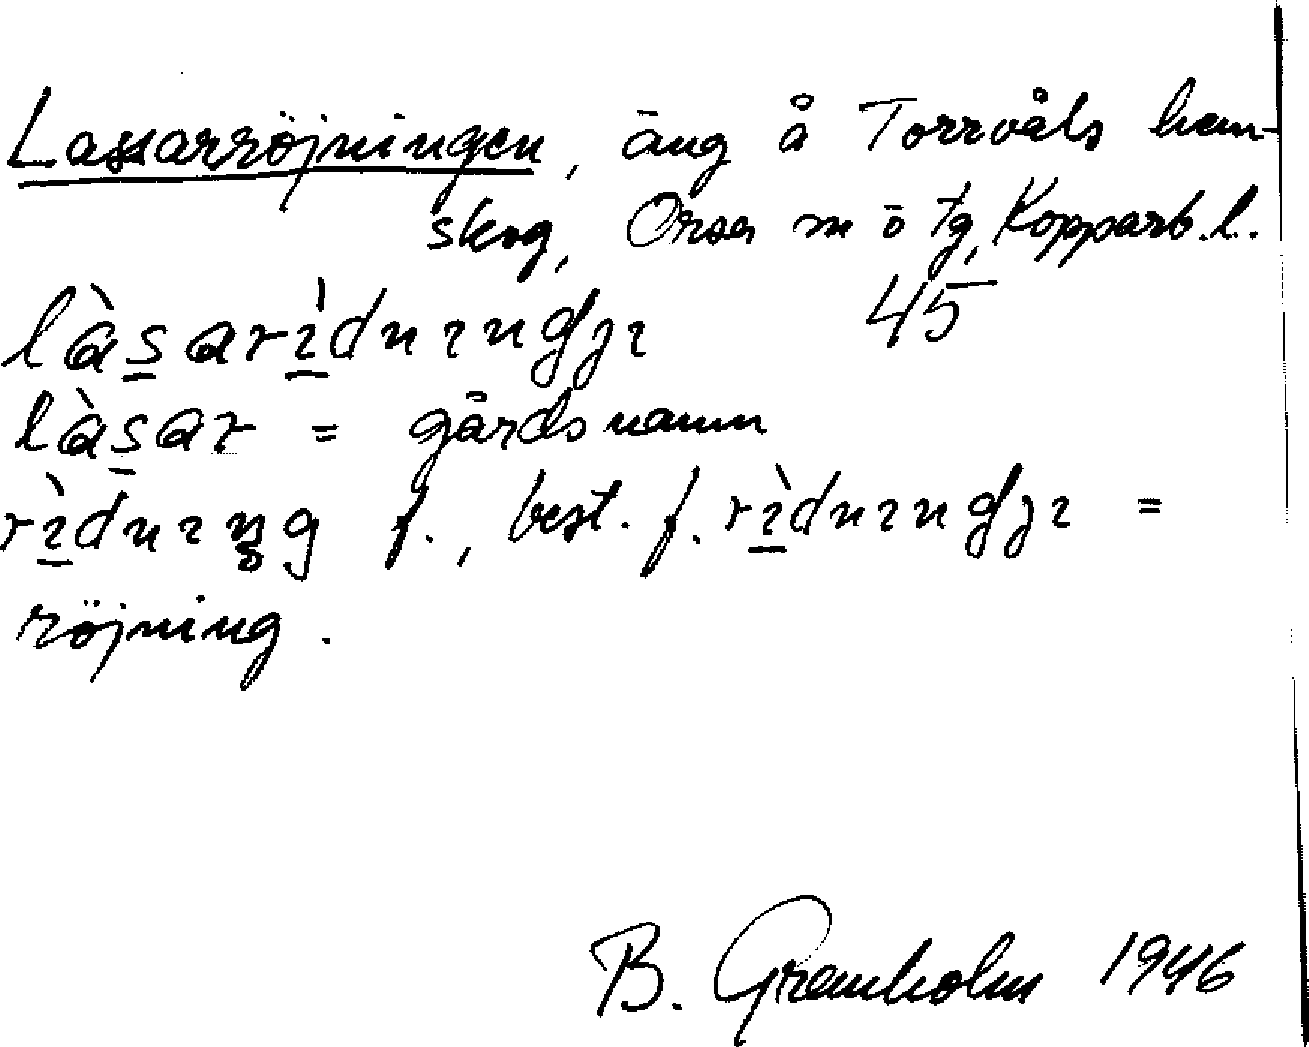 Lassarröjningen, äng å Torrvåls hem-
skog, Orsa m ö tg, Kopparb. l.
làsarìdnɪngɟɪ 45
làsar = gårdsnamn
rìdnɪŋg f., best. f. rìdnɪngɟɪ =
röjning.
B. Granholm 1946